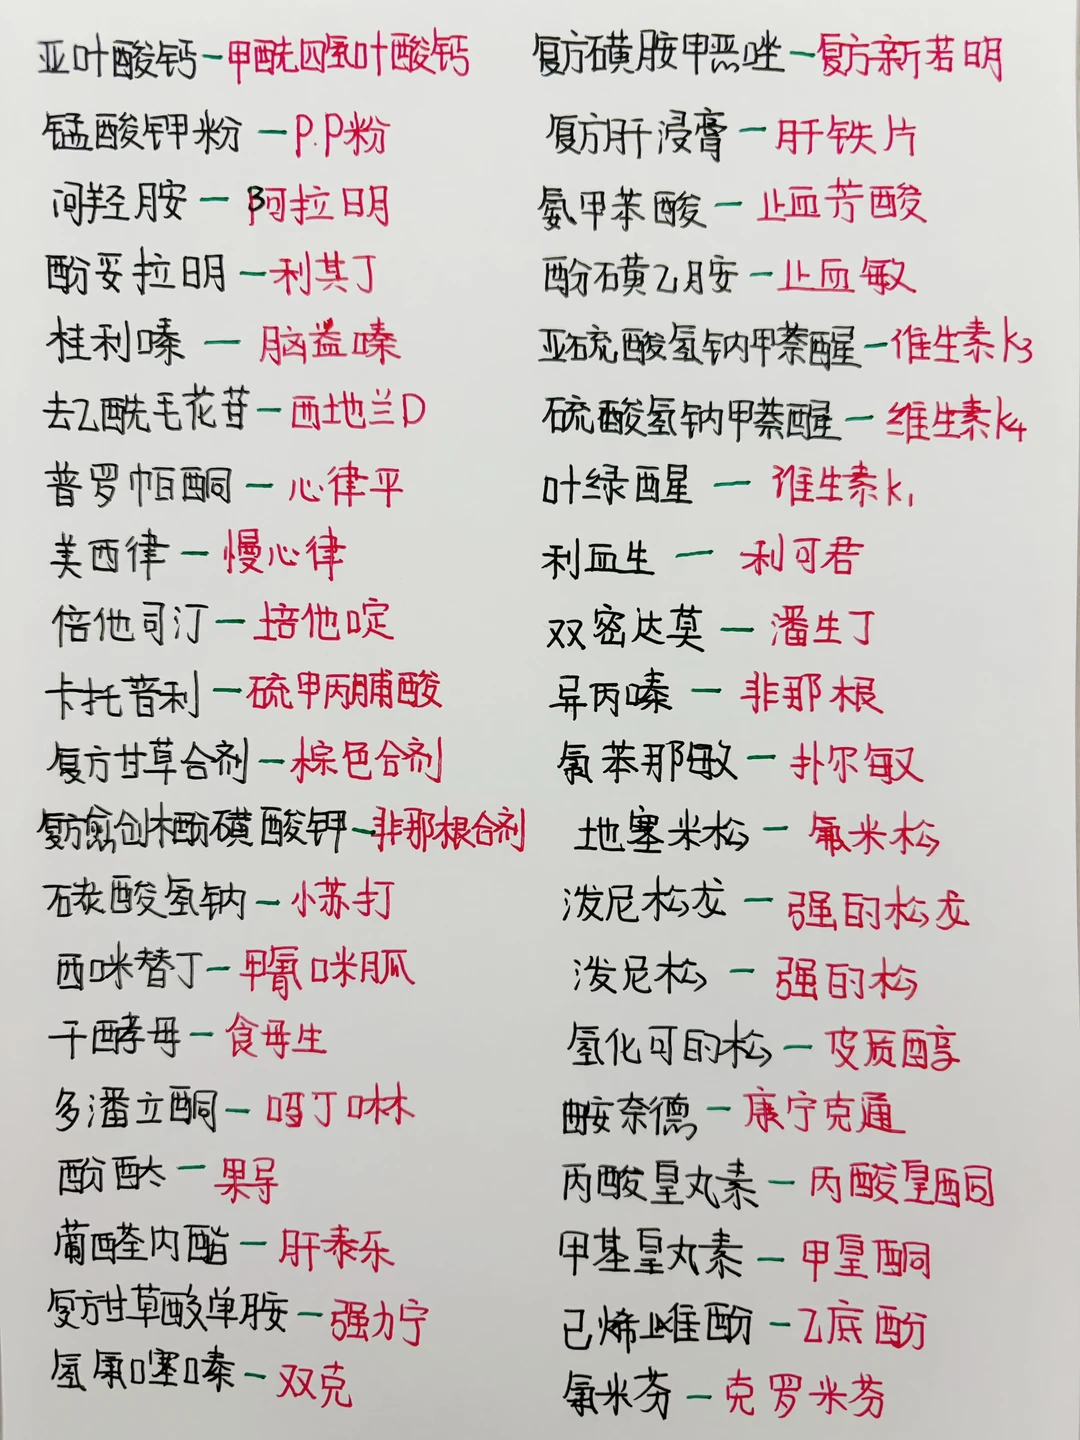 亚叶酸钙-甲酰四氢叶酸钙
锰酸钾粉-P.P粉
间羟胺-阿拉明
酚妥拉明-利其丁
桂利嗪-脑益嗪
去乙酰毛花苷-西地兰D
普罗帕酮-心律平
美西律-慢心律
倍他司汀-培他啶
卡托普利-硫甲丙脯酸
复方甘草合剂-棕色合剂
复方愈创木酚磺酸钾-非那根合剂
碳酸氢钠-小苏打
西咪替丁-甲氰咪胍
干酵母-食母生
多潘立酮-吗丁啉
酚酞-果导
葡醛内酯-肝泰乐
复方甘草酸单胺-强力宁
氢氯噻嗪-双克
复方磺胺甲恶唑-复方新若明
复方肝浸膏-肝铁片
氨甲苯酸-止血芳酸
酚磺乙胺-止血敏
亚硫酸氢钠甲萘醌-维生素k3
硫酸氢钠甲萘醌-维生素k4
叶绿醌-维生素k1
利血生-利可君
双密达莫-潘生丁
异丙嗪-非那根
氯苯那敏-扑尔敏
地塞米松-氟米松
泼尼松龙-强的松龙
泼尼松-强的松
氢化可的松-皮质醇
曲安奈德-康宁克通
丙酸睾丸素-丙酸睾酮
甲基睾丸素-甲睾酮
己烯雌酚-乙底酚
氯米芬-克罗米芬